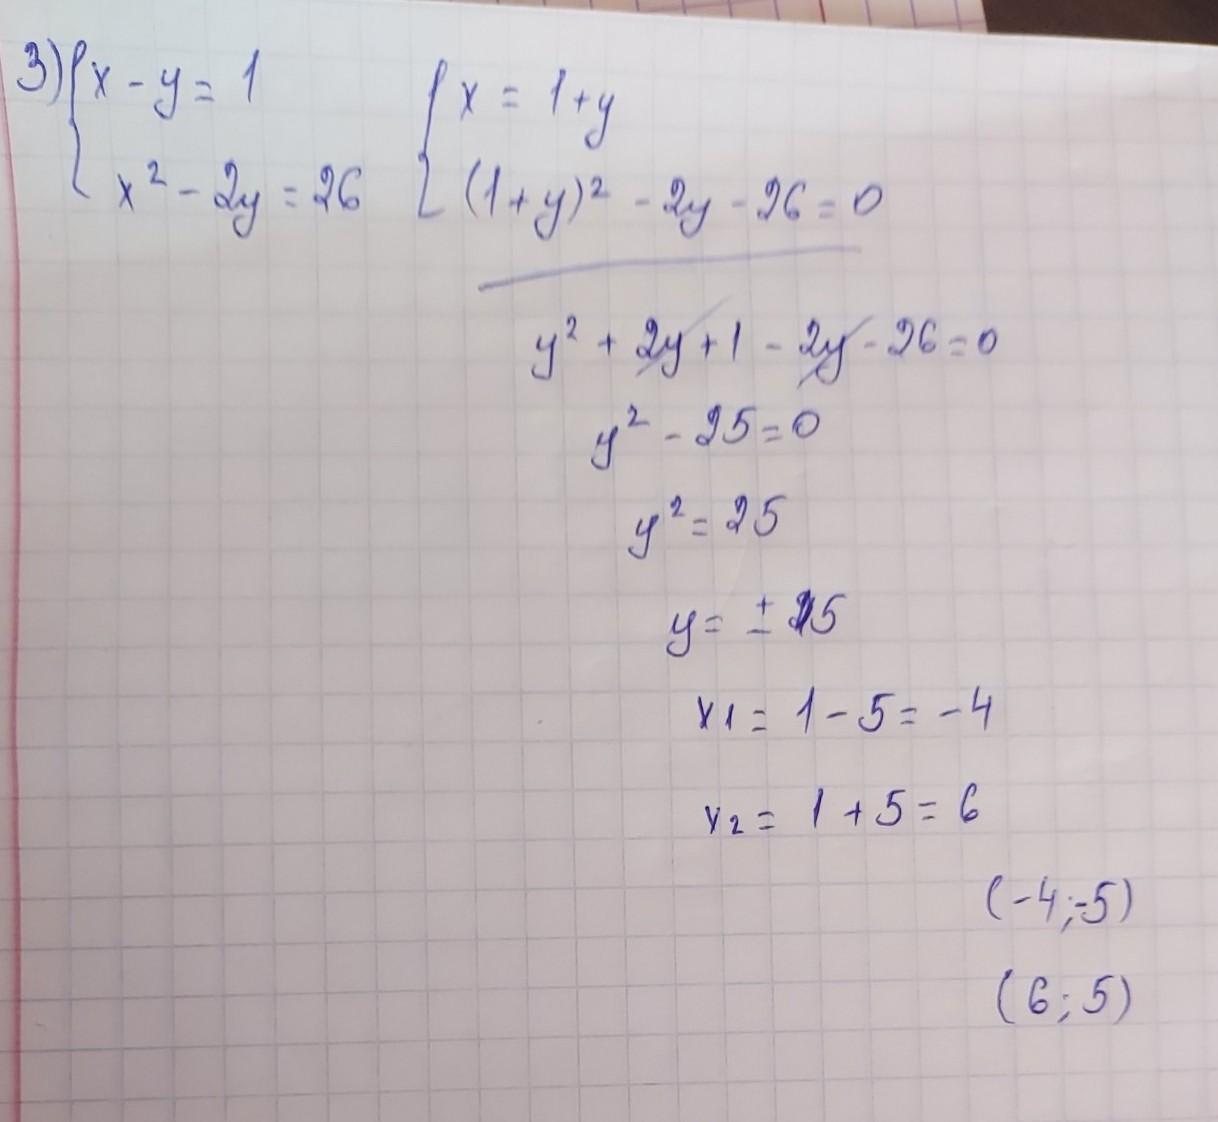 3) { x - y = 1 { x = 1 + y
x² - 2y = 26 (1 + y)² - 2y - 26 = 0
y² + 2y + 1 - 2y - 26 = 0
y² - 25 = 0
y² = 25
y = ± 5
x1 = 1 - 5 = -4
x2 = 1 + 5 = 6
(-4; -5)
(6; 5)